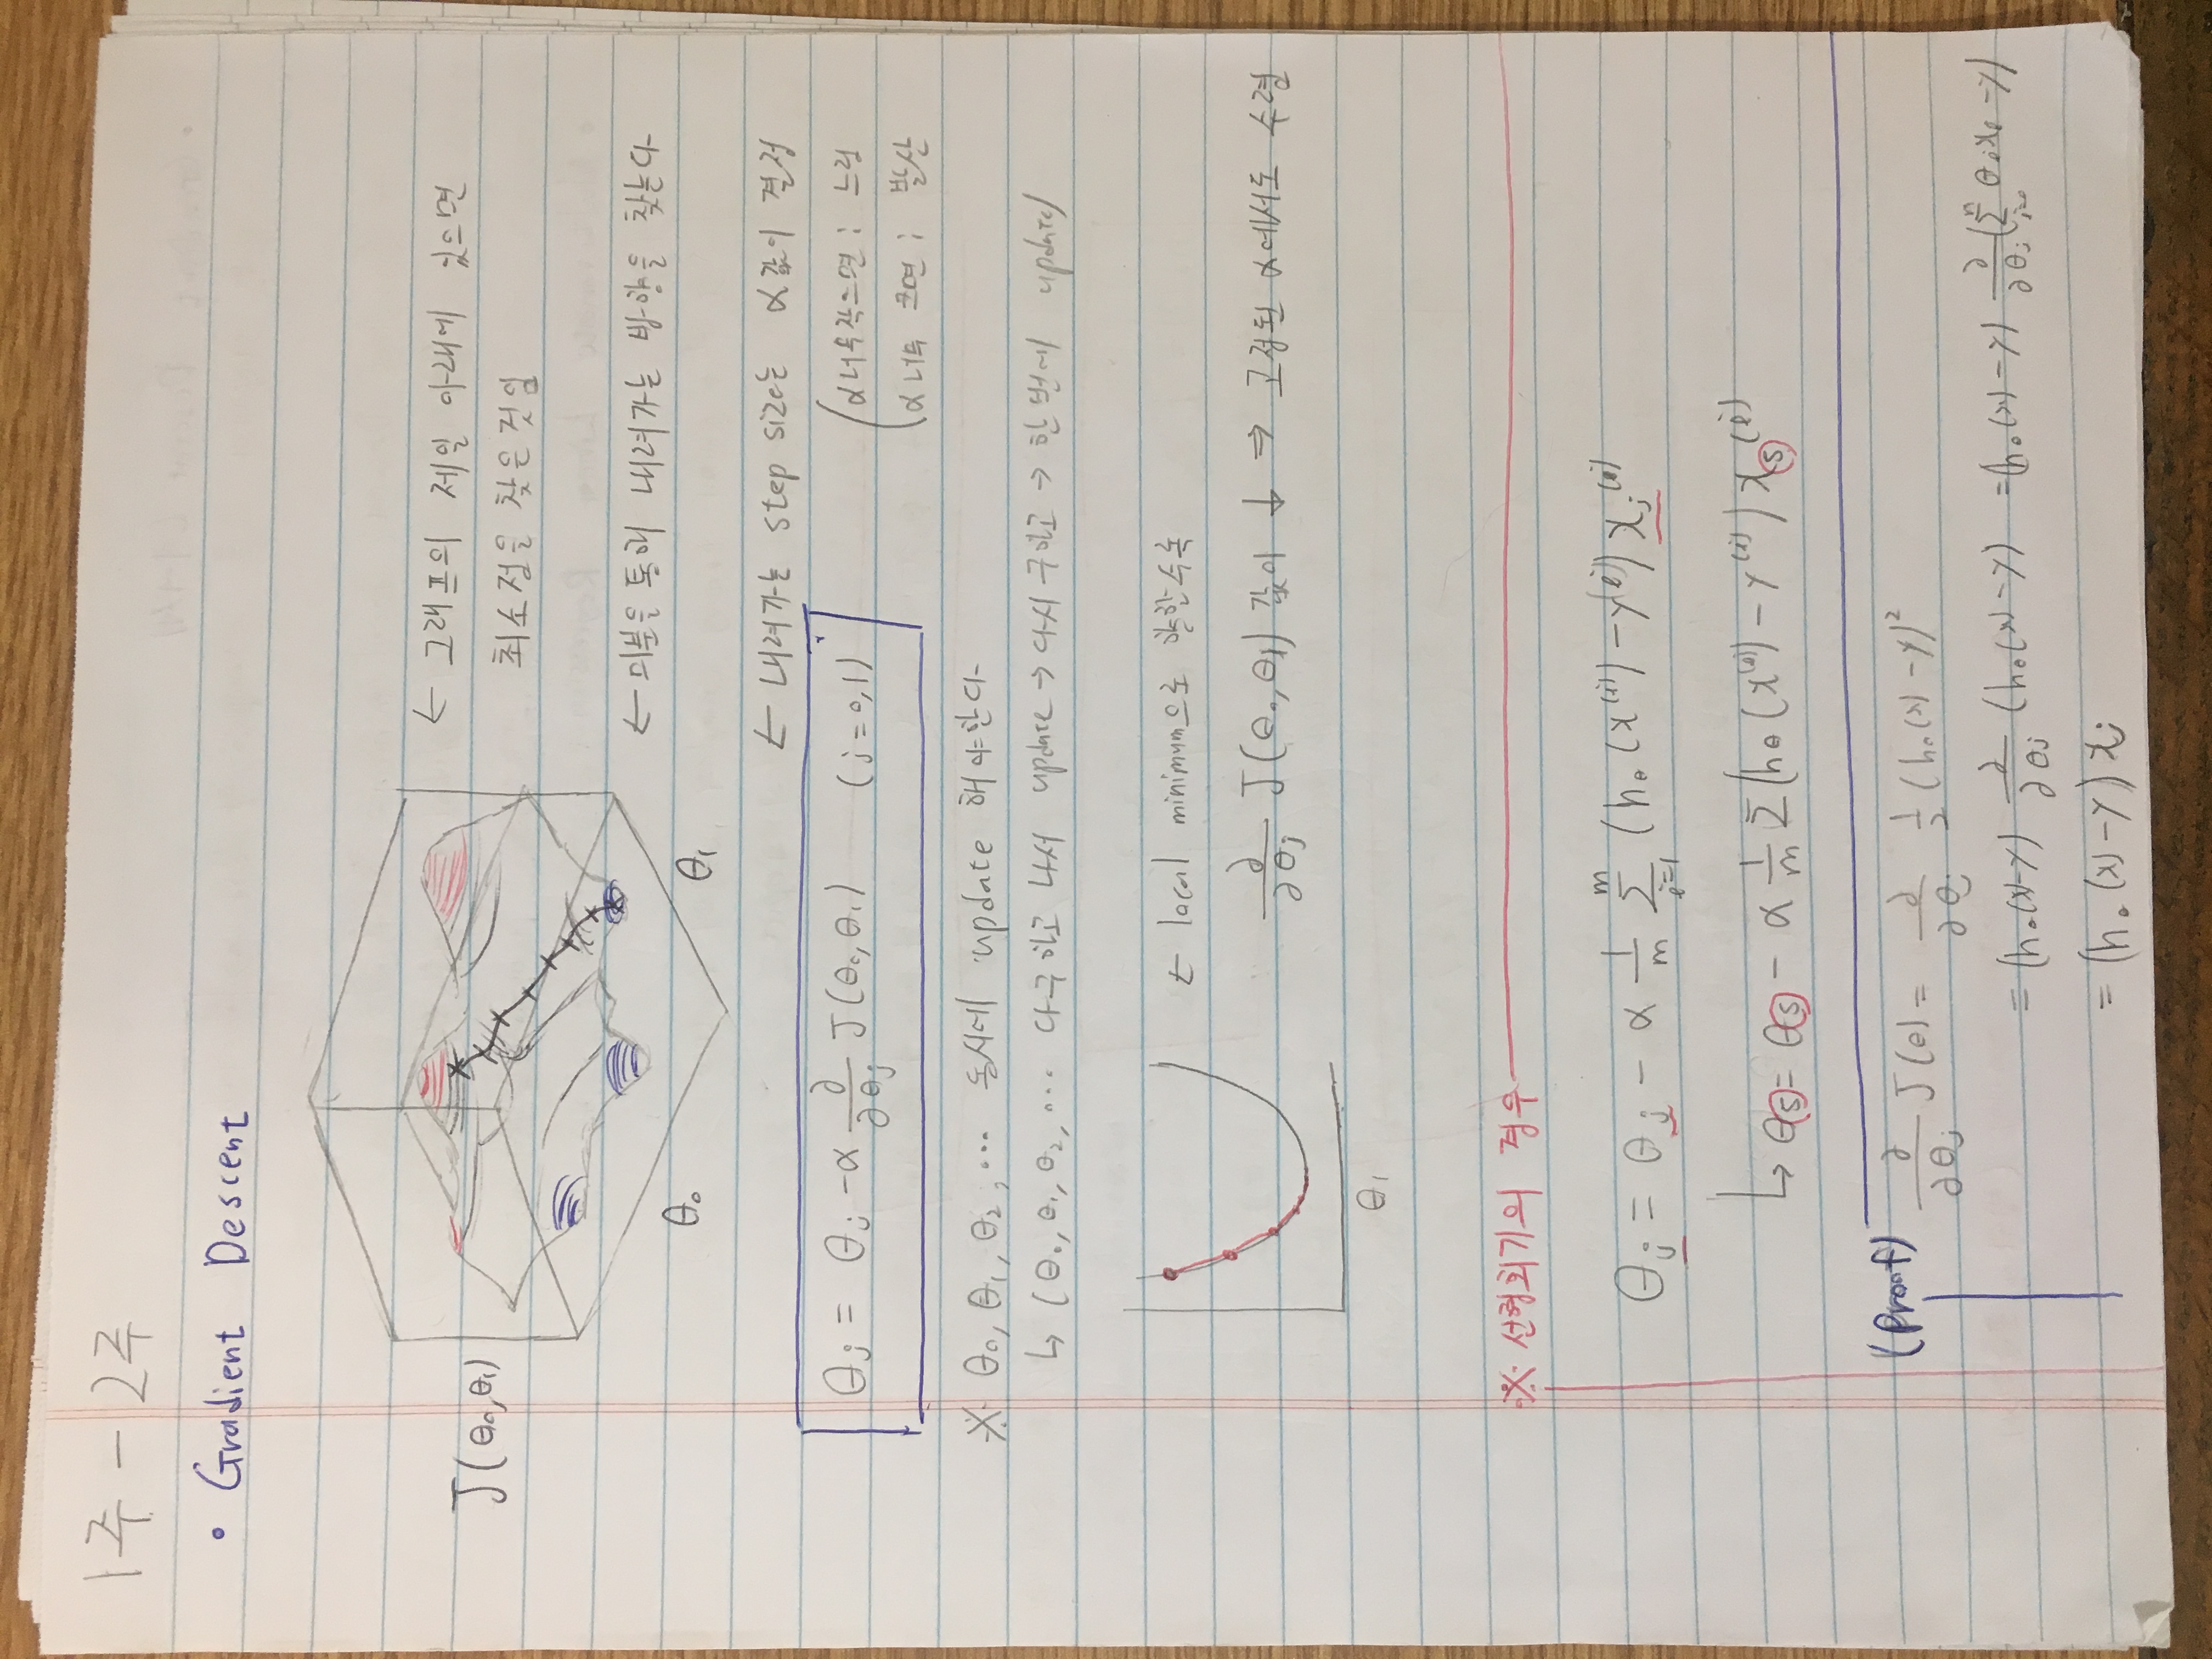 1주 - 2주
• Gradient Descent
J(θ₀,θ₁)
θ₀
θ₁
← 그래프의 제일 아래에 있으면
최소점을 찾은것임
← 미분을 통해 내려가는 방향을 찾는다
← 내려가는 step size는 α값이 결정
α너무작으면; 느림
α너무 크면; 발산
θj = θj - α ∂/∂θj J(θ₀,θ₁) (j=0,1)
※ θ₀, θ₁, θ₂, ... 동시에 update 해야한다
↳ (θ₀, θ₁, θ₂, ... 다구하고 나서 update → 다시 구하고 → 한번에 update)
θ₁
← local minimum으로 향할수록
∂/∂θj J(θ₀,θ₁) 값이 ↓ ⇒ 고정된 α에서도 수렴
※ 선형회기의 경우
θj = θj - α 1/m Σ_{i=1}^{m} (hθ(x⁽ⁱ⁾) - y⁽ⁱ⁾) xj⁽ⁱ⁾
↳ θ5 = θ5 - α 1/m Σ (hθ(x⁽ⁱ⁾) - y⁽ⁱ⁾) x5⁽ⁱ⁾
(Proof)
∂/∂θj J(θ) = ∂/∂θj 1/2 (hθ(x) - y)²
= (hθ(x) - y) ∂/∂θj (hθ(x) - y) = (hθ(x) - y) ∂/∂θj (Σ_{i=0}^{n} θixi - y)
= (hθ(x) - y) xj